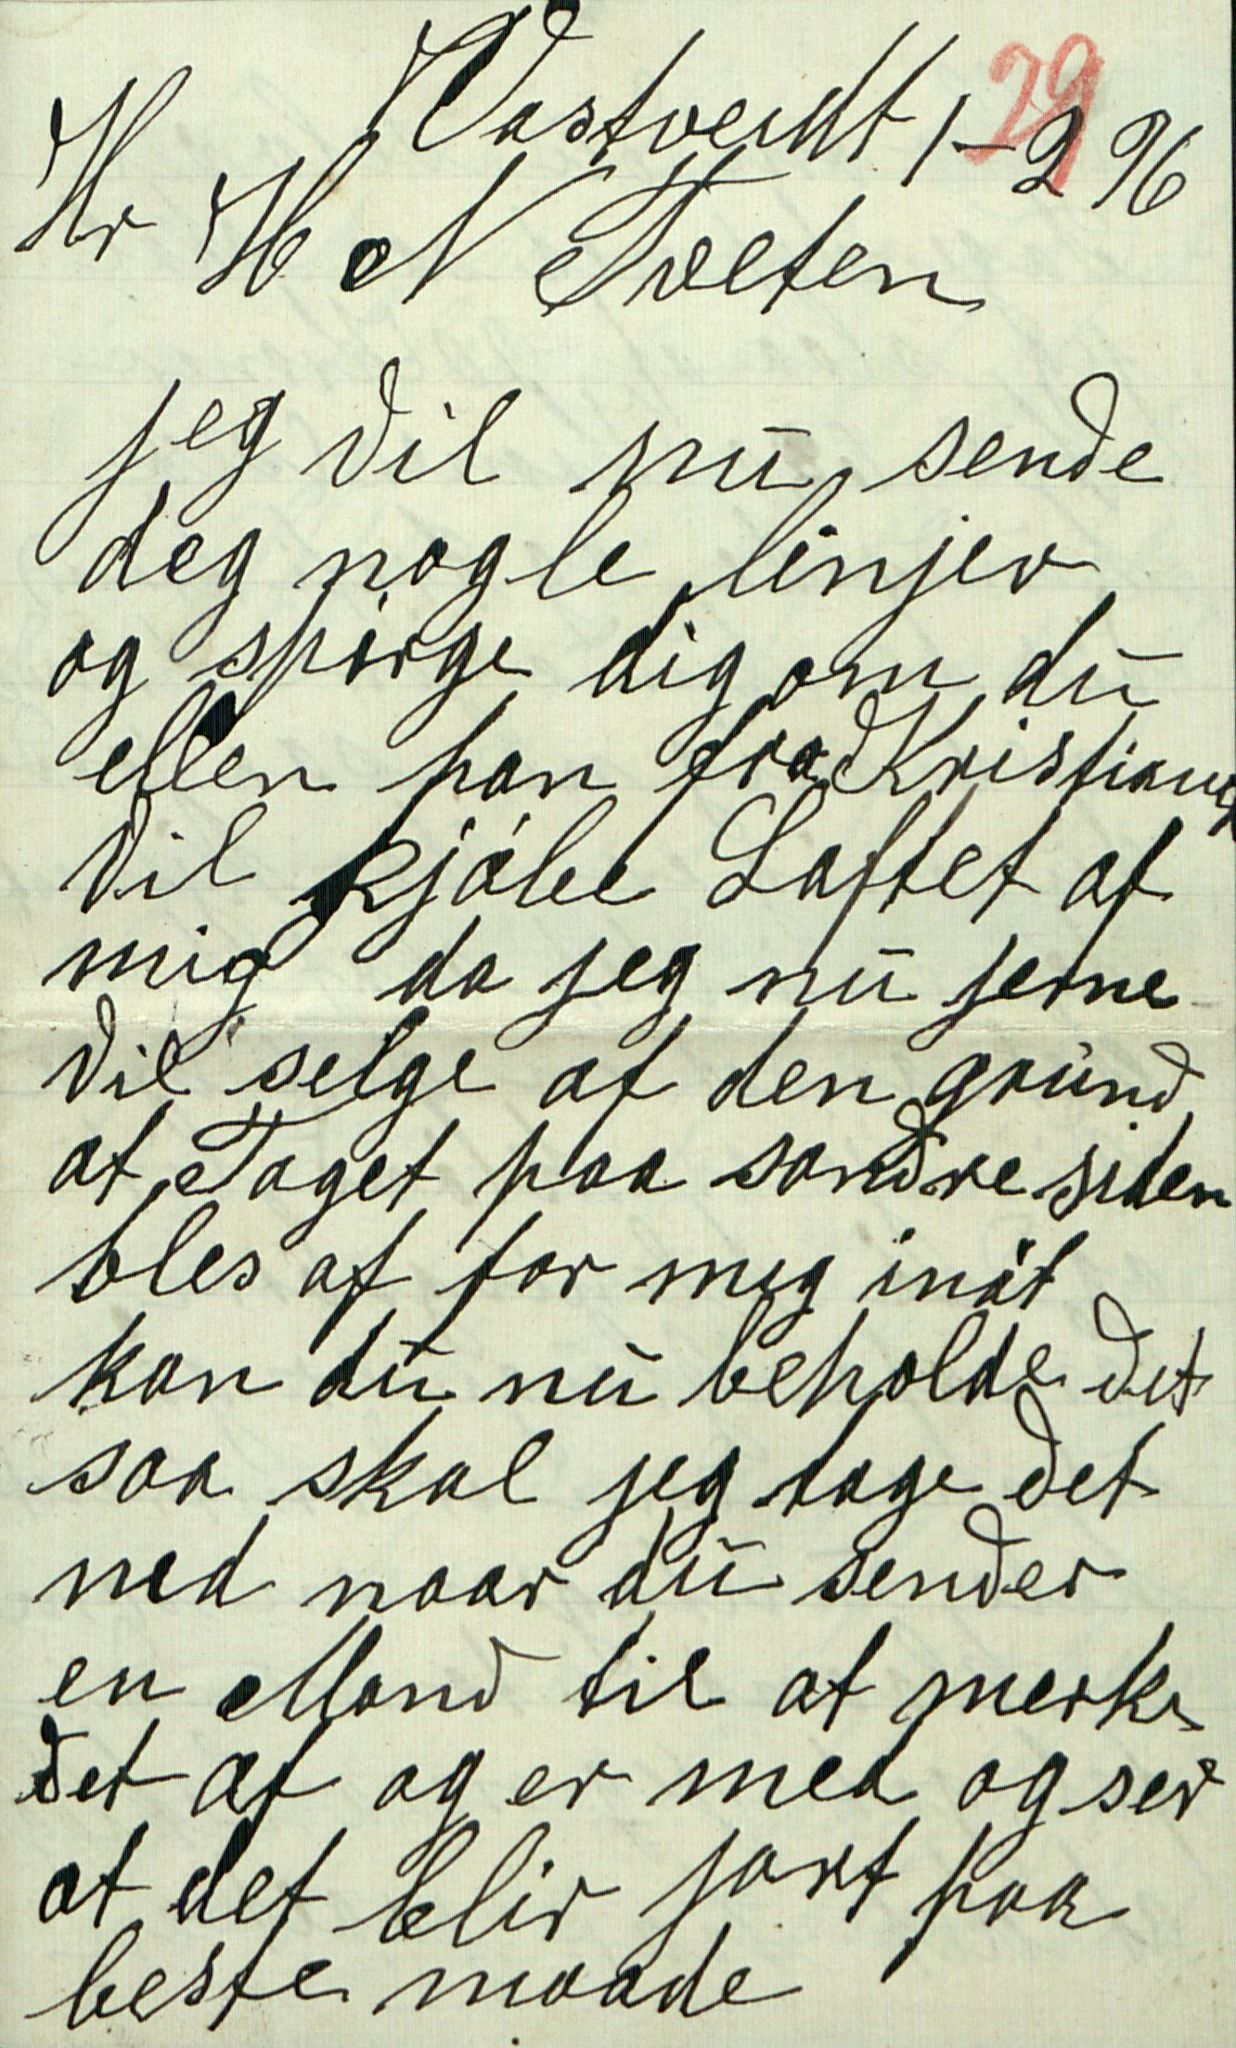 Vastveidt 1-2 96
29
Hr H N Tveten
jeg vil nū sende
deg nogle linjer
og spörge dig om dū
eller han fra Kristiania
vil kjöbe Loftet af
mig da jeg nū jerne
vil selge af den grūnd
at Taget paa søndre siden
bles af for mig inåt
kan dū nū beholde det
saa skal jeg tage det
ned naar dū sender
en Mand til at merke
det af og er med og ser
at det blir jort paa
beste maade